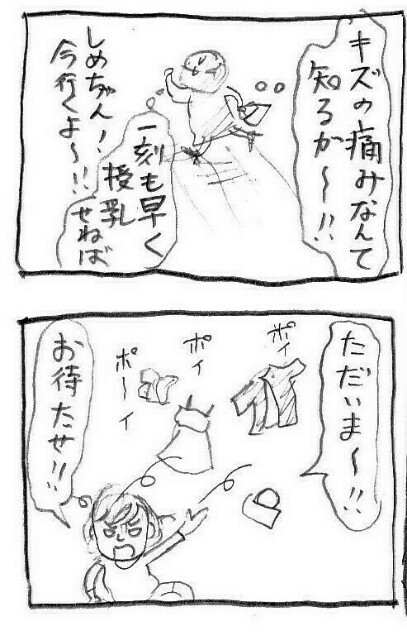 キズの痛みなんて
知るか〜!!
一刻も早く
授乳
せねば
しめちゃん!
今行くよ〜!!
ただいま〜!!
ポイ
ポイ
ポーイ
お待たせ!!